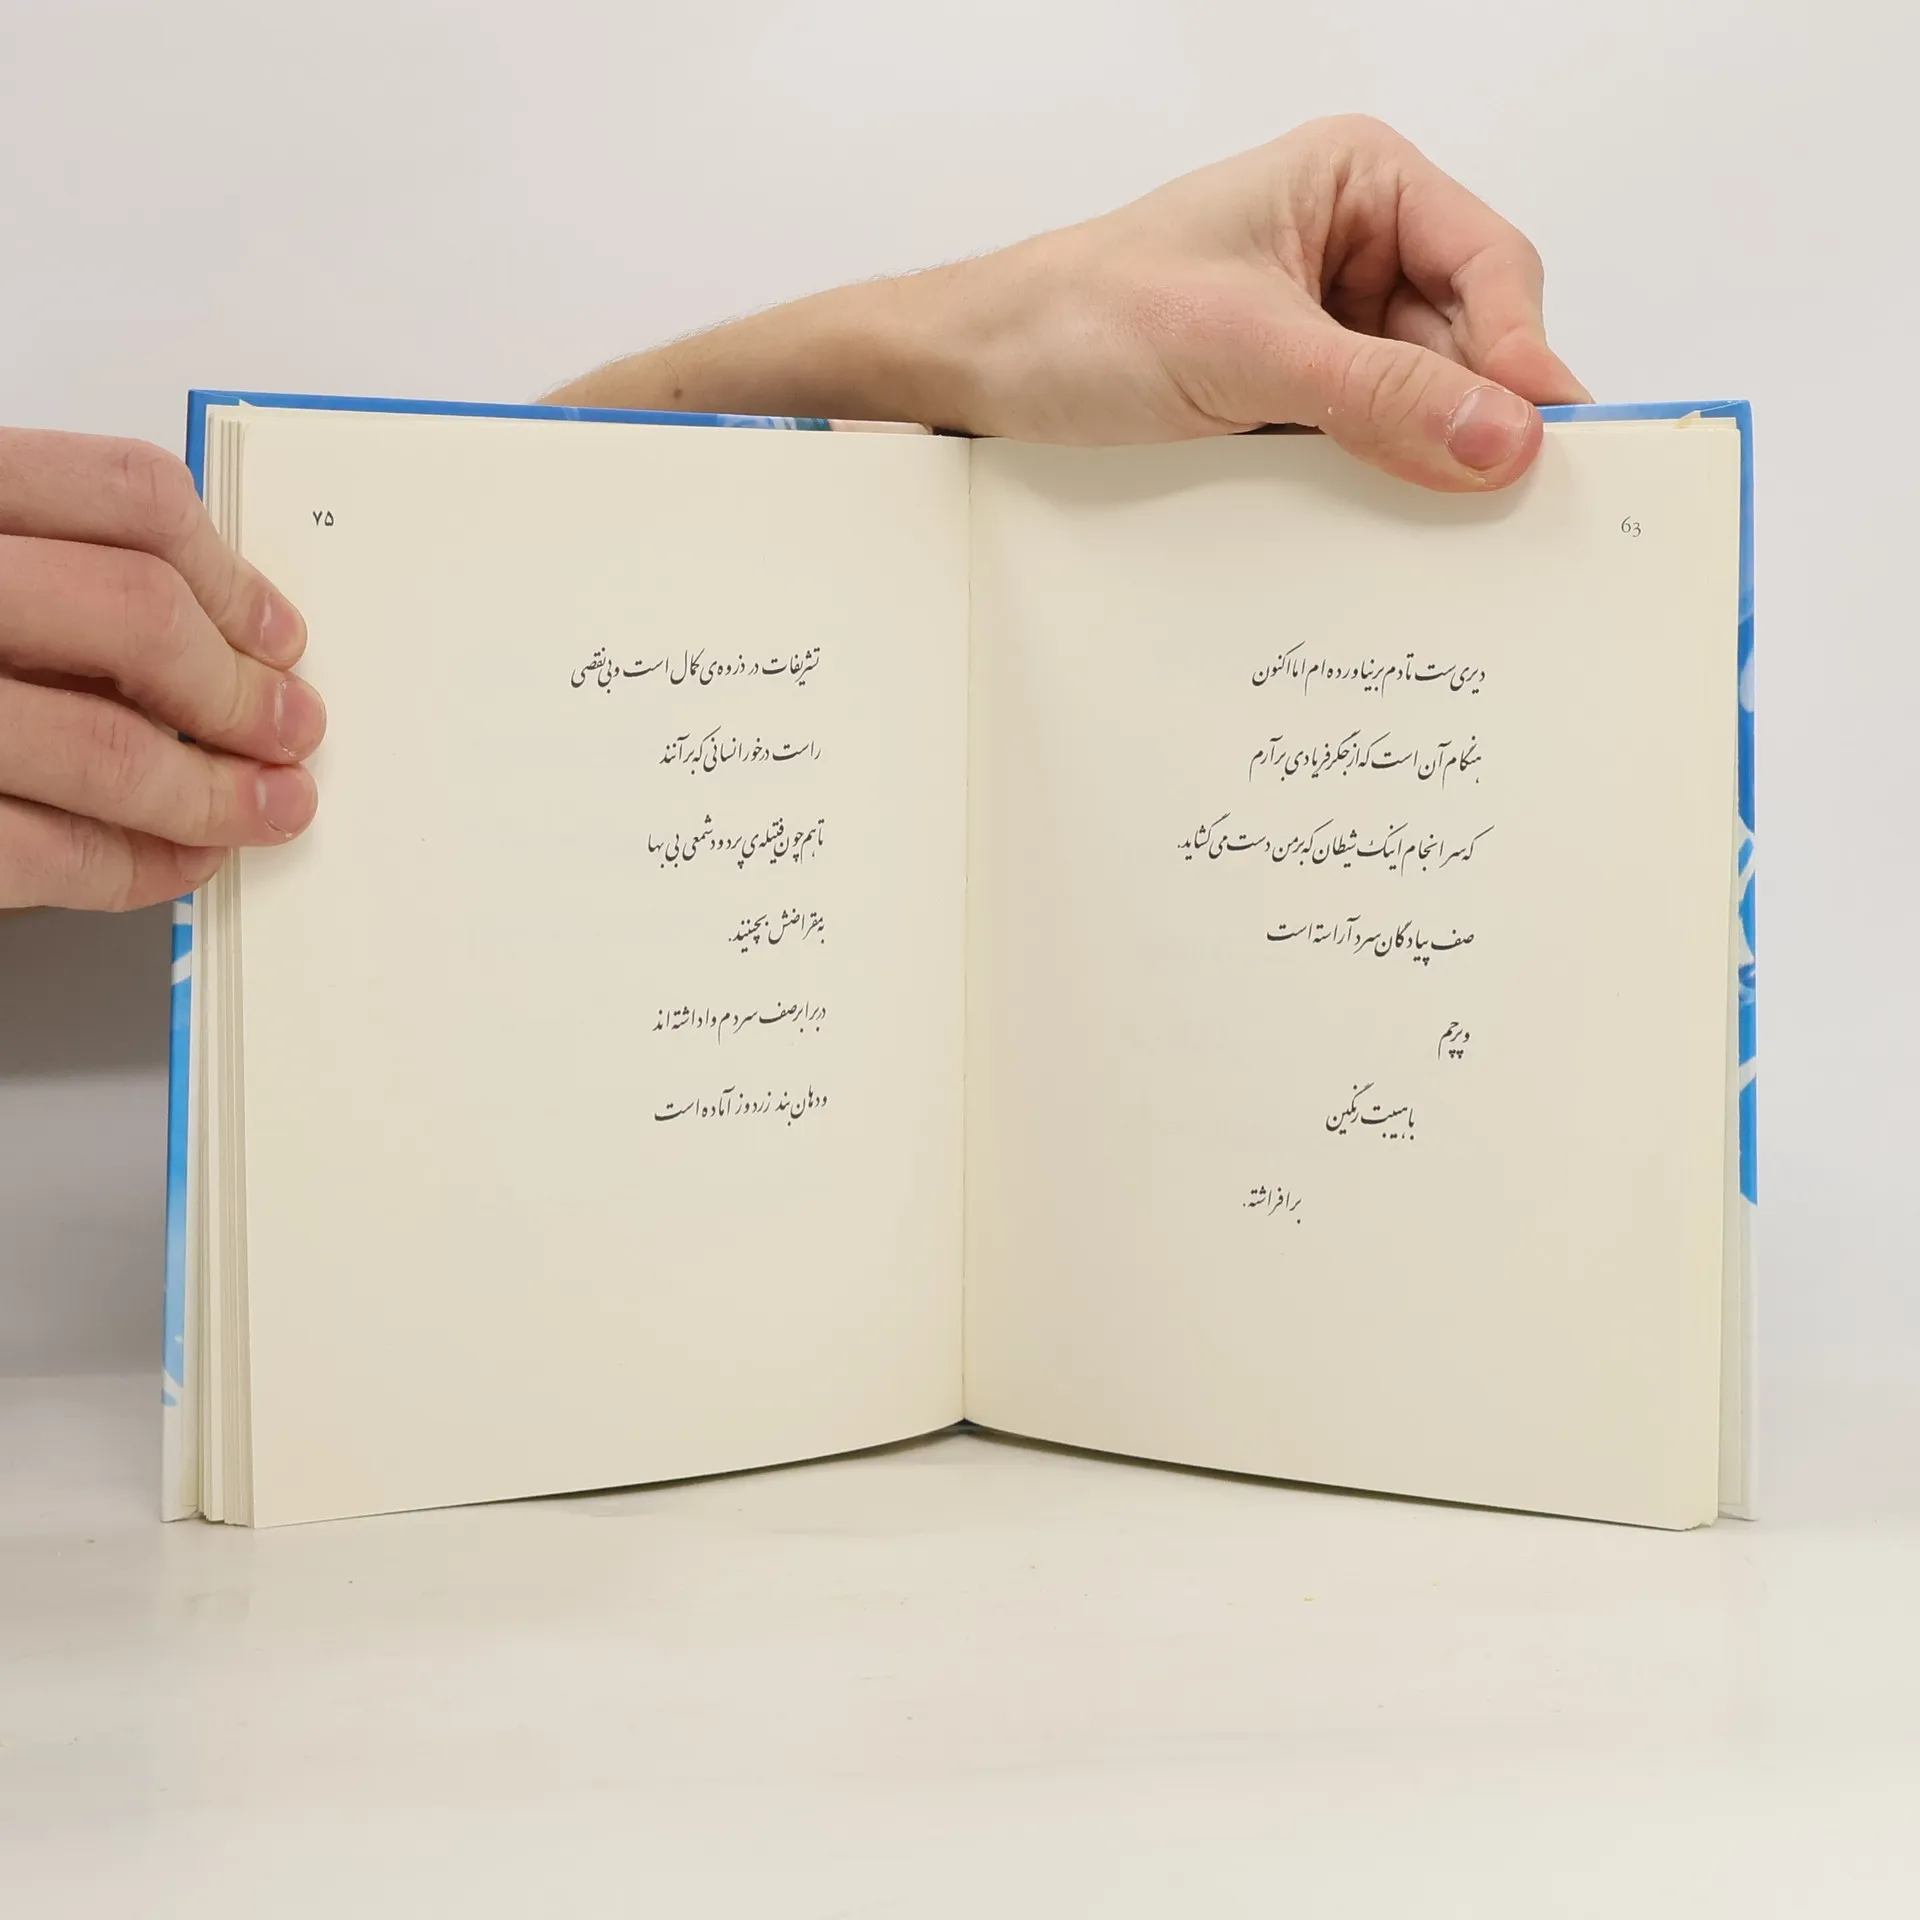 63
دیری‌ست تا دم بر نیاورده‌ام اما اکنون
هنگام آن است که از جگر فریادی برآرم
که سرانجام اینک شیطان که بر من دست می‌گشاید.
صف پیادگان سرد آراسته است
و پرچم
با هیبت رنگین
برافراشته.
۷۵
تشریفات در ذروه‌ی کمال است و بی‌نقصی
راست در خور انسانی که برآنند
تا هم‌چون فتیله‌ی پر دود شمعی بی‌بها
به مقراضش بچینند.
در برابر صف سردم واداشته‌اند
و دهان‌بند زردوز آماده است